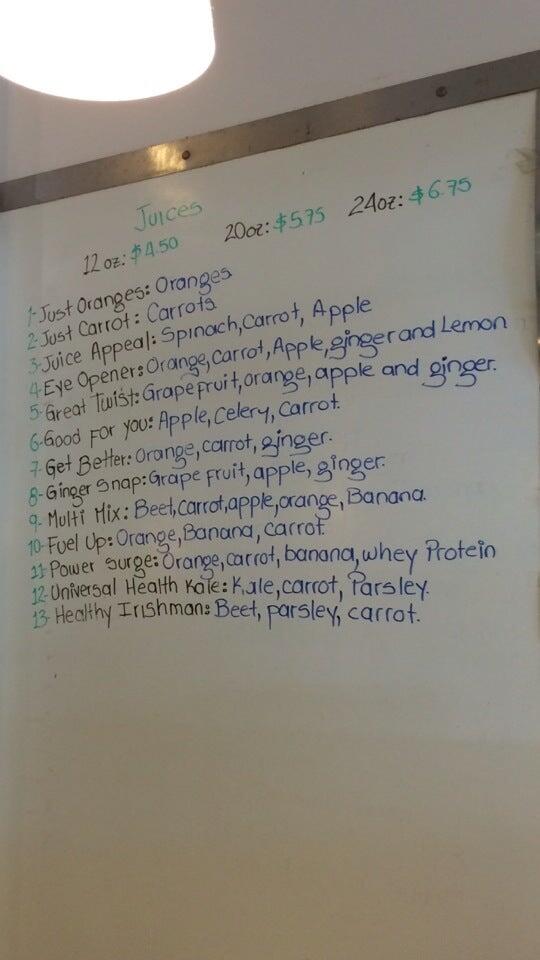 Juices
12oz: $4.50 20oz: $5.75 24oz: $6.75
1-Just Oranges: Oranges
2-Just Carrot: Carrots
3-Juice Appeal: Spinach, Carrot, Apple
4-Eye Opener: Orange, carrot, Apple, ginger and Lemon
5-Great Twist: Grapefruit, orange, apple and ginger.
6-Good For you: Apple, Celery, Carrot.
7-Get Better: Orange, carrot, ginger.
8-Ginger Snap: Grape fruit, apple, ginger.
9-Multi Mix: Beet, carrot, apple, orange, Banana.
10-Fuel Up: Orange, Banana, carrot.
11-Power Surge: Orange, carrot, banana, whey Protein
12-Universal Health Kale: Kale, carrot, Parsley.
13-Healthy Irishman: Beet, parsley, carrot.